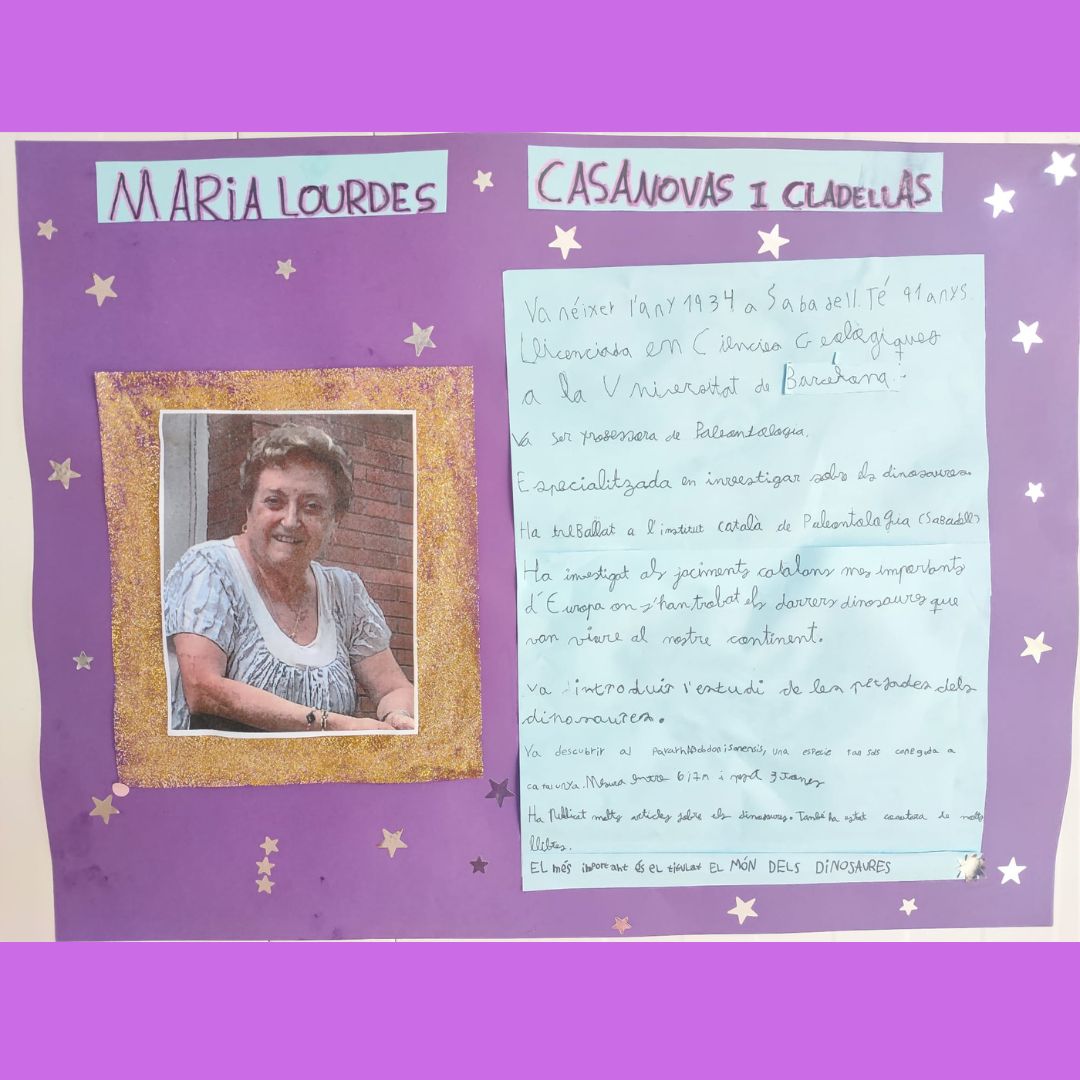 MARIA LOURDES
CASANOVAS I CLADELLAS
Va néixer l'any 1934 a Sabadell. Té 91 anys.
Llicenciada en Ciències Geològiques
a la Universitat de Barcelona.
Va ser professora de Paleontologia.
Especialitzada en investigar sobre els dinosaures.
Ha treBallat a l'institut català de Paleontologia (Sabadell)
Ha investigat als jaciments catalans mes importants
d'Europa on s'han trobat els darrers dinosaures que
van viure al nostre continent.
Va introduir l'estudi de les petjades dels
dinosaures.
Va descubrir al pararhabdodon isonensis, una especie tan sols coneguda a
catalunya. Mesura entre 6 i 7m i pesa 3 tones
Ha Publicat molts articles sobre els dinosaures. També ha estat coautora de molts
llibres.
EL més important és el titulat EL MÓN DELS DINOSAURES